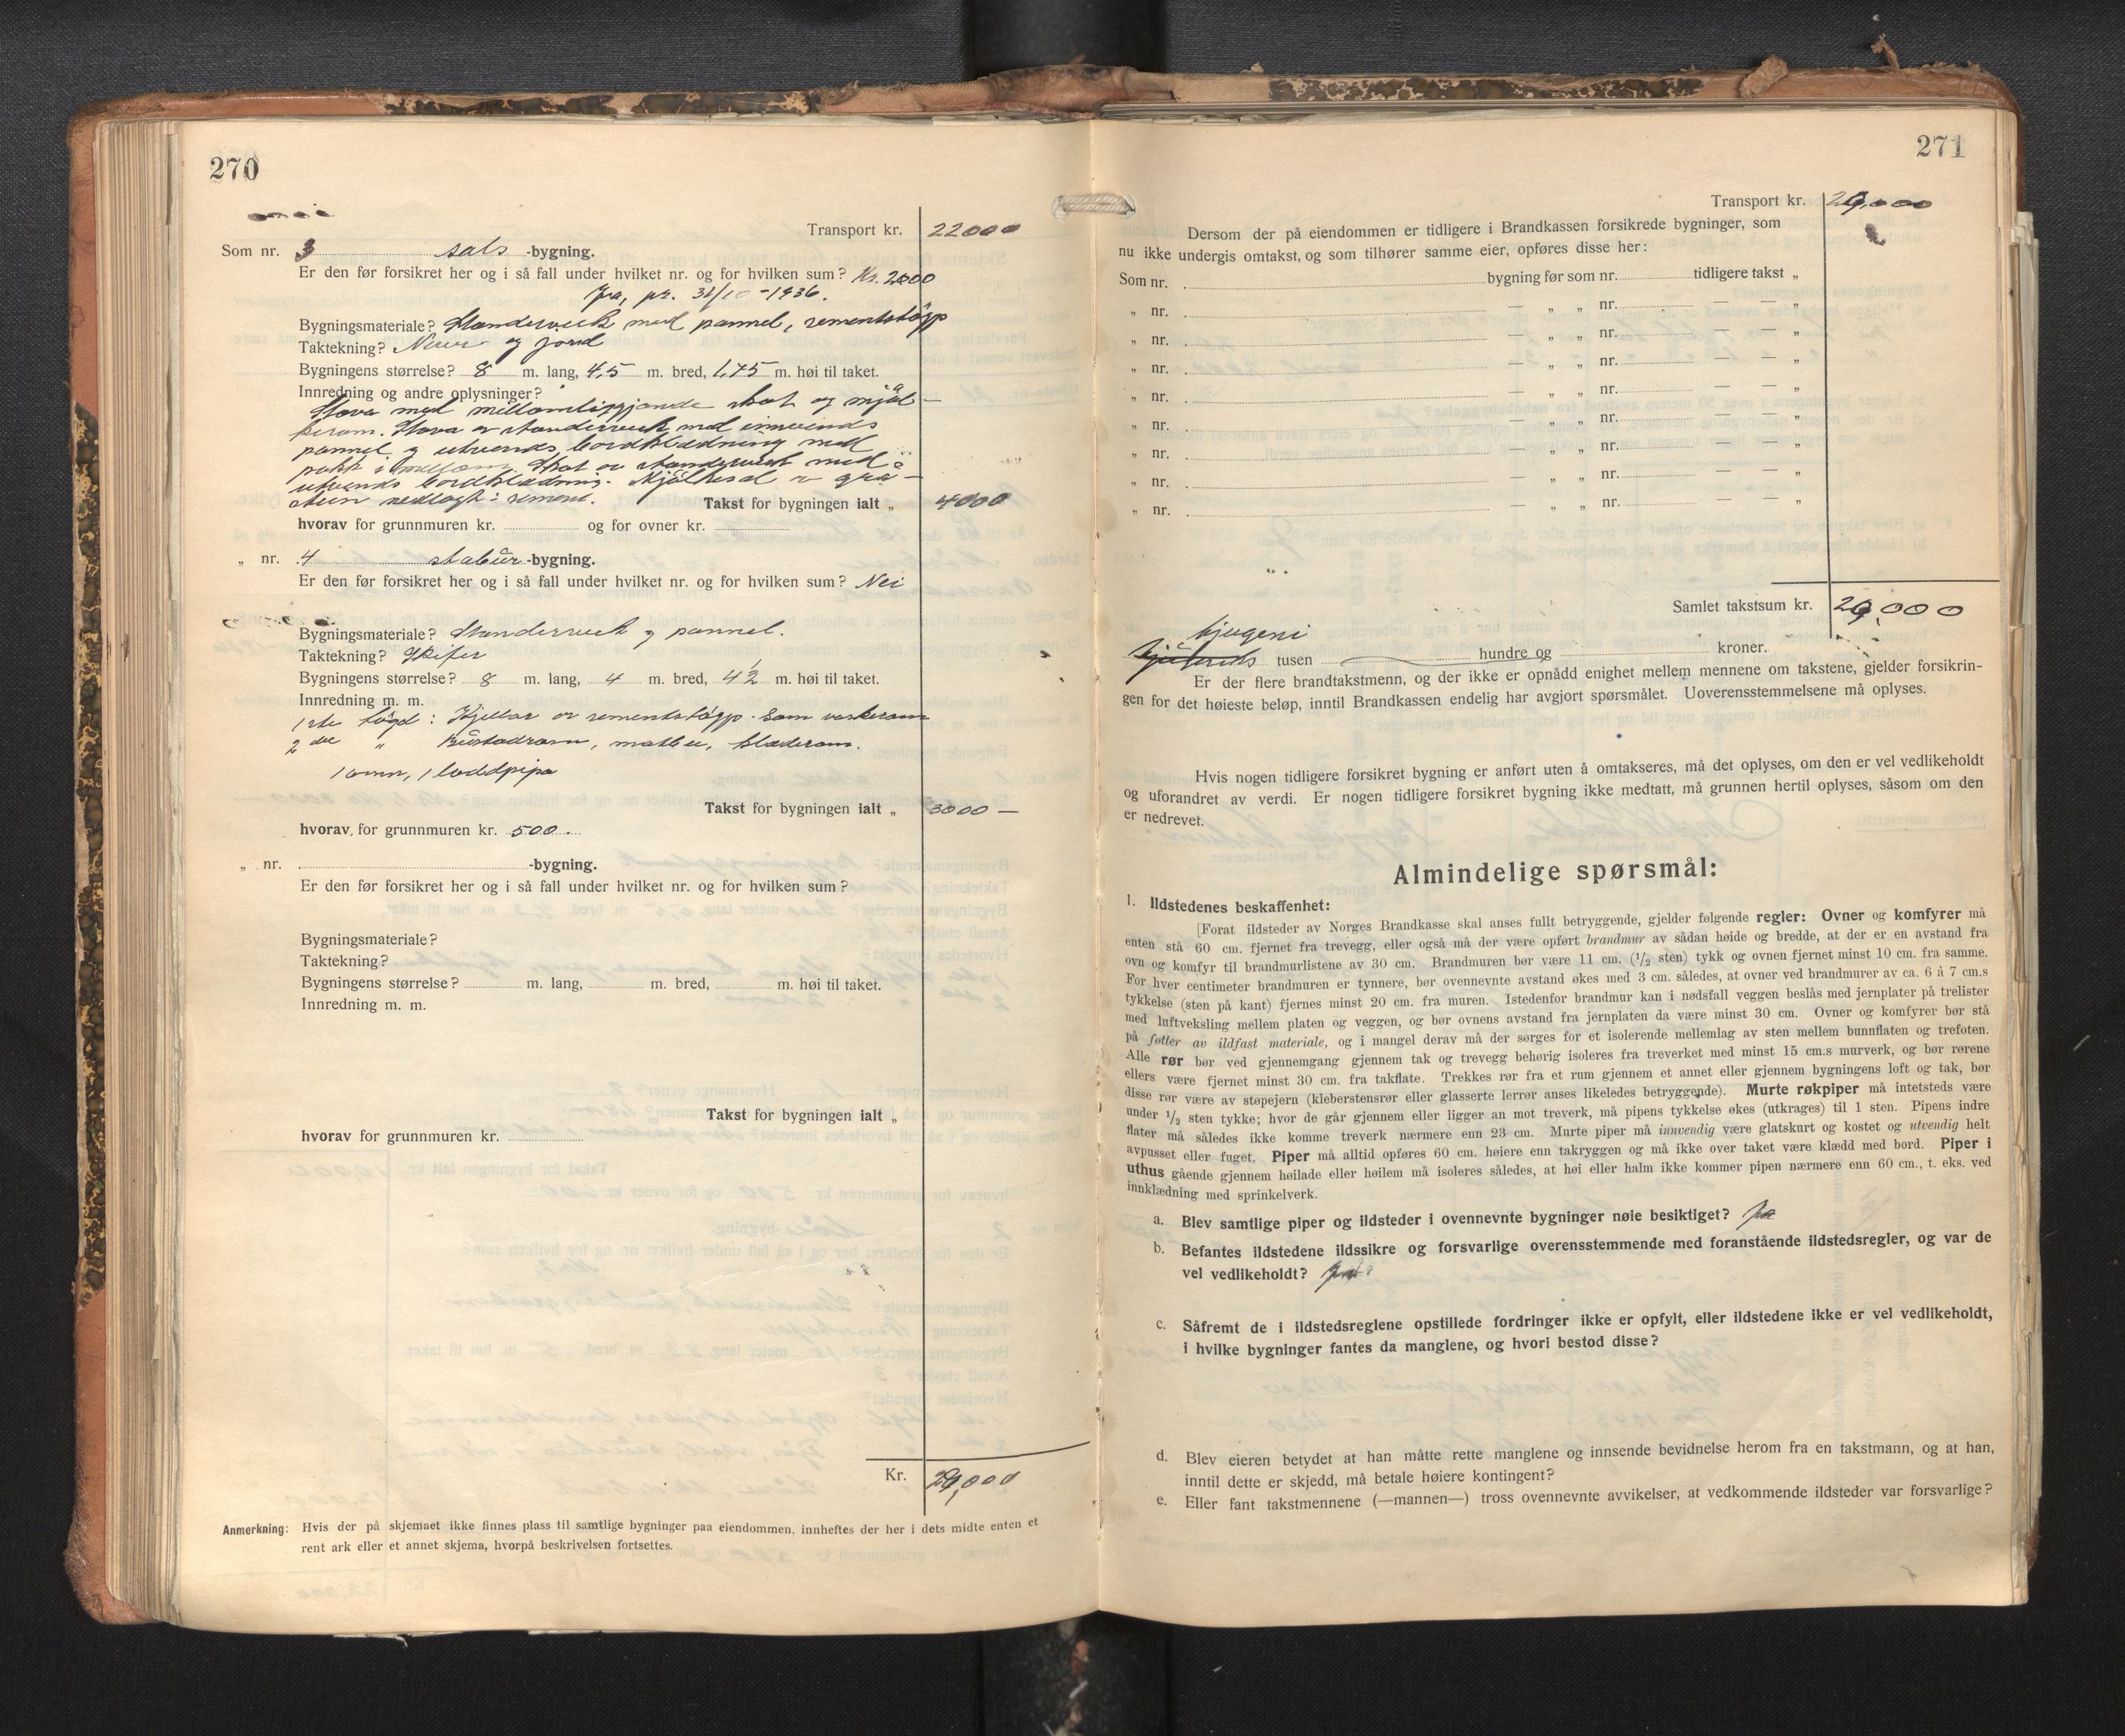 270
Transport kr. 22000
Som nr. 3 sals -bygning.
Er den før forsikret her og i så fall under hvilket nr. og for hvilken sum? Kr. 2000
Ja, pr. 31/10-1936.
Bygningsmateriale? Standerverk med pannel, sementstøyp
Taktekning? Never og jord
Bygningens størrelse? 8 m. lang, 4,5 m. bred, 1,75 m. høi til taket.
Innredning og andre oplysninger?
Stova med millomliggjande skot og mjøl-
kerom. Stova er standerverk med innvends
pannel og utvends bordklædning med
papp i mellom. Skot er standerverk med
utvends bordklædning. Mjølkesal er grå-
stein nedlagt i sement. Takst for bygningen ialt „ 4000
hvorav for grunnmuren kr. og for ovner kr.
„ nr. 4 stabur -bygning.
Er den før forsikret her og i så fall under hvilket nr. og for hvilken sum? Nei
Bygningsmateriale? Standerverk og pannel.
Taktekning? Skifer
Bygningens størrelse? 8 m. lang, 4 m. bred, 4 1/2 m. høi til taket.
Innredning m. m.
1ste høgd: Kjellar er sementstøypt. Som vaskerom
2 dre „ matbu, klæderom.
1 omn, 1 loddpipa
Takst for bygningen ialt „ 3000 —
hvorav for grunnmuren kr. 500.
„ nr. -bygning.
Er den før forsikret her og i så fall under hvilket nr. og for hvilken sum?
Bygningsmateriale?
Taktekning?
Bygningens størrelse? m. lang, m. bred, m. høi til taket.
Innredning m. m.
Takst for bygningen ialt „
hvorav for grunnmuren kr.
Kr. 29,000
Anmerkning: Hvis der på skjemaet ikke finnes plass til samtlige bygninger paa eiendommen, innheftes der her i dets midte enten et
rent ark eller et annet skjema, hvorpå beskrivelsen fortsettes.
271
Transport kr. 29,000
Dersom der på eiendommen er tidligere i Brandkassen forsikrede bygninger, som
nu ikke undergis omtakst, og som tilhører samme eier, opføres disse her:
Som nr. bygning før som nr. tidligere takst „
„ nr. — „ „ nr. — — „
„ nr. — „ „ nr. — — „
„ nr. — „ „ nr. — — „
„ nr. — „ „ nr. — — „
„ nr. — „ „ nr. — — „
„ nr. — „ „ nr. — — „
„ nr. — „ „ nr. — — „
„ nr. — „ „ nr. — — „
Samlet takstsum kr. 29,000
tjugeni
tusen hundre og kroner.
Er der flere brandtakstmenn, og der ikke er opnådd enighet mellem mennene om takstene, gjelder forsikrin-
gen for det høieste beløp, inntil Brandkassen endelig har avgjort spørsmålet. Uoverensstemmelsene må oplyses.
Hvis nogen tidligere forsikret bygning er anført uten å omtakseres, må det oplyses, om den er vel vedlikeholdt
og uforandret av verdi. Er nogen tidligere forsikret bygning ikke medtatt, må grunnen hertil oplyses, såsom om den
er nedrevet.
Almindelige spørsmål:
1. Ildstedenes beskaffenhet:
[Forat ildsteder av Norges Brandkasse skal anses fullt betryggende, gjelder følgende regler: Ovner og komfyrer må
enten stå 60 cm. fjernet fra trevegg, eller også må der være opført brandmur av sådan høide og bredde, at der er en avstand fra
ovn og komfyr til brandmurlistene av 30 cm. Brandmuren bør være 11 cm. (1/2 sten) tykk og ovnen fjernet minst 10 cm. fra samme.
For hver centimeter brandmuren er tynnere, bør ovennevnte avstand økes med 3 cm. således, at ovner ved brandmurer av ca. 6 à 7 cm.s
tykkelse (sten på kant) fjernes minst 20 cm. fra muren. Istedenfor brandmur kan i nødsfall veggen beslås med jernplater på trelister
med luftveksling mellem platen og veggen, og bør ovnens avstand fra jernplaten da være minst 30 cm. Ovner og komfyrer bør stå
på føtter av ildfast materiale, og i mangel derav må der sørges for et isolerende mellemlag av sten mellem bunnflaten og trefoten.
Alle rør bør ved gjennemgang gjennem tak og trevegg behørig isoleres fra treverket med minst 15 cm.s murverk, og bør rørene
ellers være fjernet minst 30 cm. fra takflate. Trekkes rør fra et rum gjennem et annet eller gjennem bygningens loft og tak, bør
disse rør være av støpejern (kleberstensrør eller glasserte lerrør anses likeledes betryggende). Murte røkpiper må intetsteds være
under 1/2 sten tykke; hvor de går gjennem eller ligger an mot treverk, må pipens tykkelse økes (utkrages) til 1 sten. Pipens indre
flater må således ikke komme treverk nærmere enn 23 cm. Murte piper må innvendig være glatskurt og kostet og utvendig helt
avpusset eller fuget. Piper må alltid opføres 60 cm. høiere enn takryggen og må ikke over taket være klædd med bord. Piper i
uthus gående gjennem høilade eller høilem må isoleres således, at høi eller halm ikke kommer pipen nærmere enn 60 cm., t. eks. ved
innklædning med sprinkelverk.
a. Blev samtlige piper og ildsteder i ovennevnte bygninger nøie besiktiget? Ja
b. Befantes ildstedene ildssikre og forsvarlige overensstemmende med foranstående ildstedsregler, og var de
vel vedlikeholdt? Ja
c. Såfremt de i ildstedsreglene opstillede fordringer ikke er opfylt, eller ildstedene ikke er vel vedlikeholdt,
i hvilke bygninger fantes da manglene, og hvori bestod disse?
d. Blev eieren betydet at han måtte rette manglene og innsende bevidnelse herom fra en takstmann, og at han,
inntil dette er skjedd, må betale høiere kontingent?
e. Eller fant takstmennene (—mannen—) tross ovennevnte avvikelser, at vedkommende ildsteder var forsvarlige?